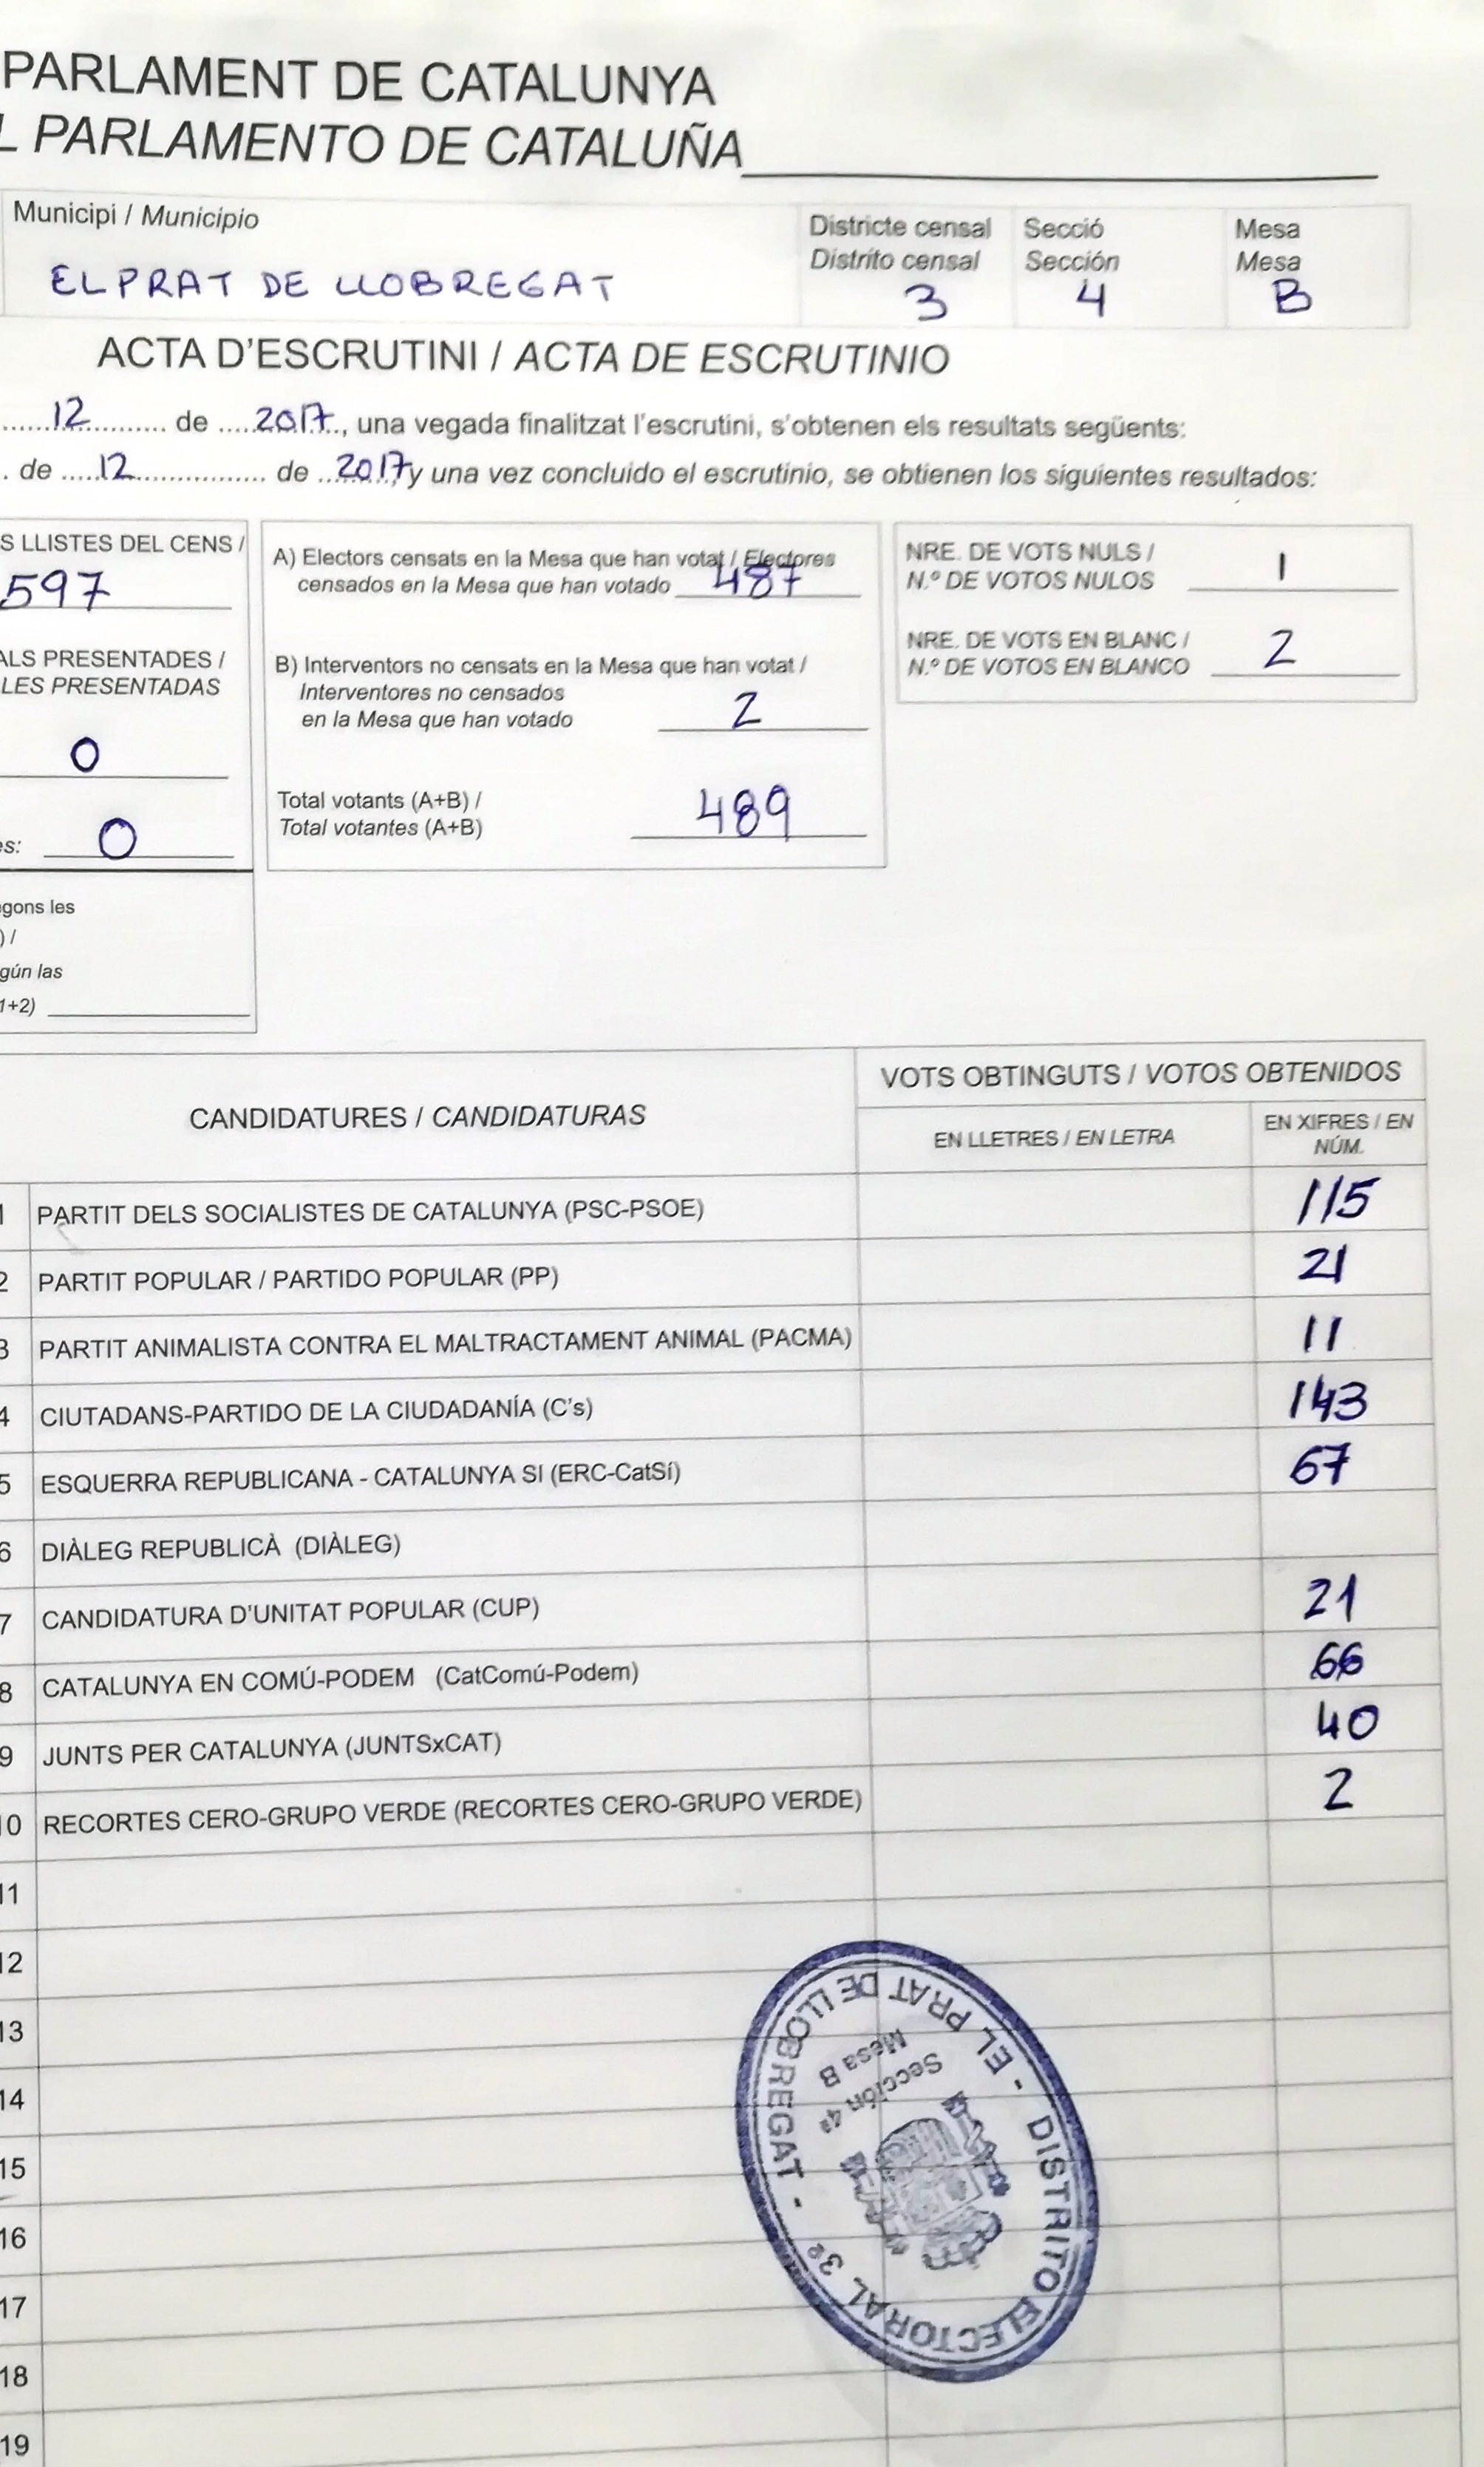 PARLAMENT DE CATALUNYA
L PARLAMENTO DE CATALUÑA
Municipi / Municipio
EL PRAT DE LLOBREGAT
Districte censal
Distrito censal
3
Secció
Sección
4
Mesa
Mesa
B
ACTA D'ESCRUTINI / ACTA DE ESCRUTINIO
12 de 2017, una vegada finalitzat l'escrutini, s'obtenen els resultats següents:
. de 12 de 2017, y una vez concluido el escrutinio, se obtienen los siguientes resultados:
S LLISTES DEL CENS /
597
ALS PRESENTADES /
LES PRESENTADAS
0
es: 0
gons les
) /
gún las
1+2)
A) Electors censats en la Mesa que han votat / Electores
censados en la Mesa que han votado 487
B) Interventors no censats en la Mesa que han votat /
Interventores no censados
en la Mesa que han votado 2
Total votants (A+B) /
Total votantes (A+B) 489
NRE. DE VOTS NULS /
N.º DE VOTOS NULOS 1
NRE. DE VOTS EN BLANC /
N.º DE VOTOS EN BLANCO 2
CANDIDATURES / CANDIDATURAS
VOTS OBTINGUTS / VOTOS OBTENIDOS
EN LLETRES / EN LETRA
EN XIFRES / EN
NÚM.
1 PARTIT DELS SOCIALISTES DE CATALUNYA (PSC-PSOE) 115
2 PARTIT POPULAR / PARTIDO POPULAR (PP) 21
3 PARTIT ANIMALISTA CONTRA EL MALTRACTAMENT ANIMAL (PACMA) 11
4 CIUTADANS-PARTIDO DE LA CIUDADANÍA (C's) 143
5 ESQUERRA REPUBLICANA - CATALUNYA SI (ERC-CatSí) 67
6 DIÀLEG REPUBLICÀ (DIÀLEG)
7 CANDIDATURA D'UNITAT POPULAR (CUP) 21
8 CATALUNYA EN COMÚ-PODEM (CatComú-Podem) 66
9 JUNTS PER CATALUNYA (JUNTSxCAT) 40
10 RECORTES CERO-GRUPO VERDE (RECORTES CERO-GRUPO VERDE) 2
11
12
13
14
15
16
17
18
19
DISTRITO ELECTORAL 3º - EL PRAT DE LLOBREGAT -
Sección 4ª
Mesa B